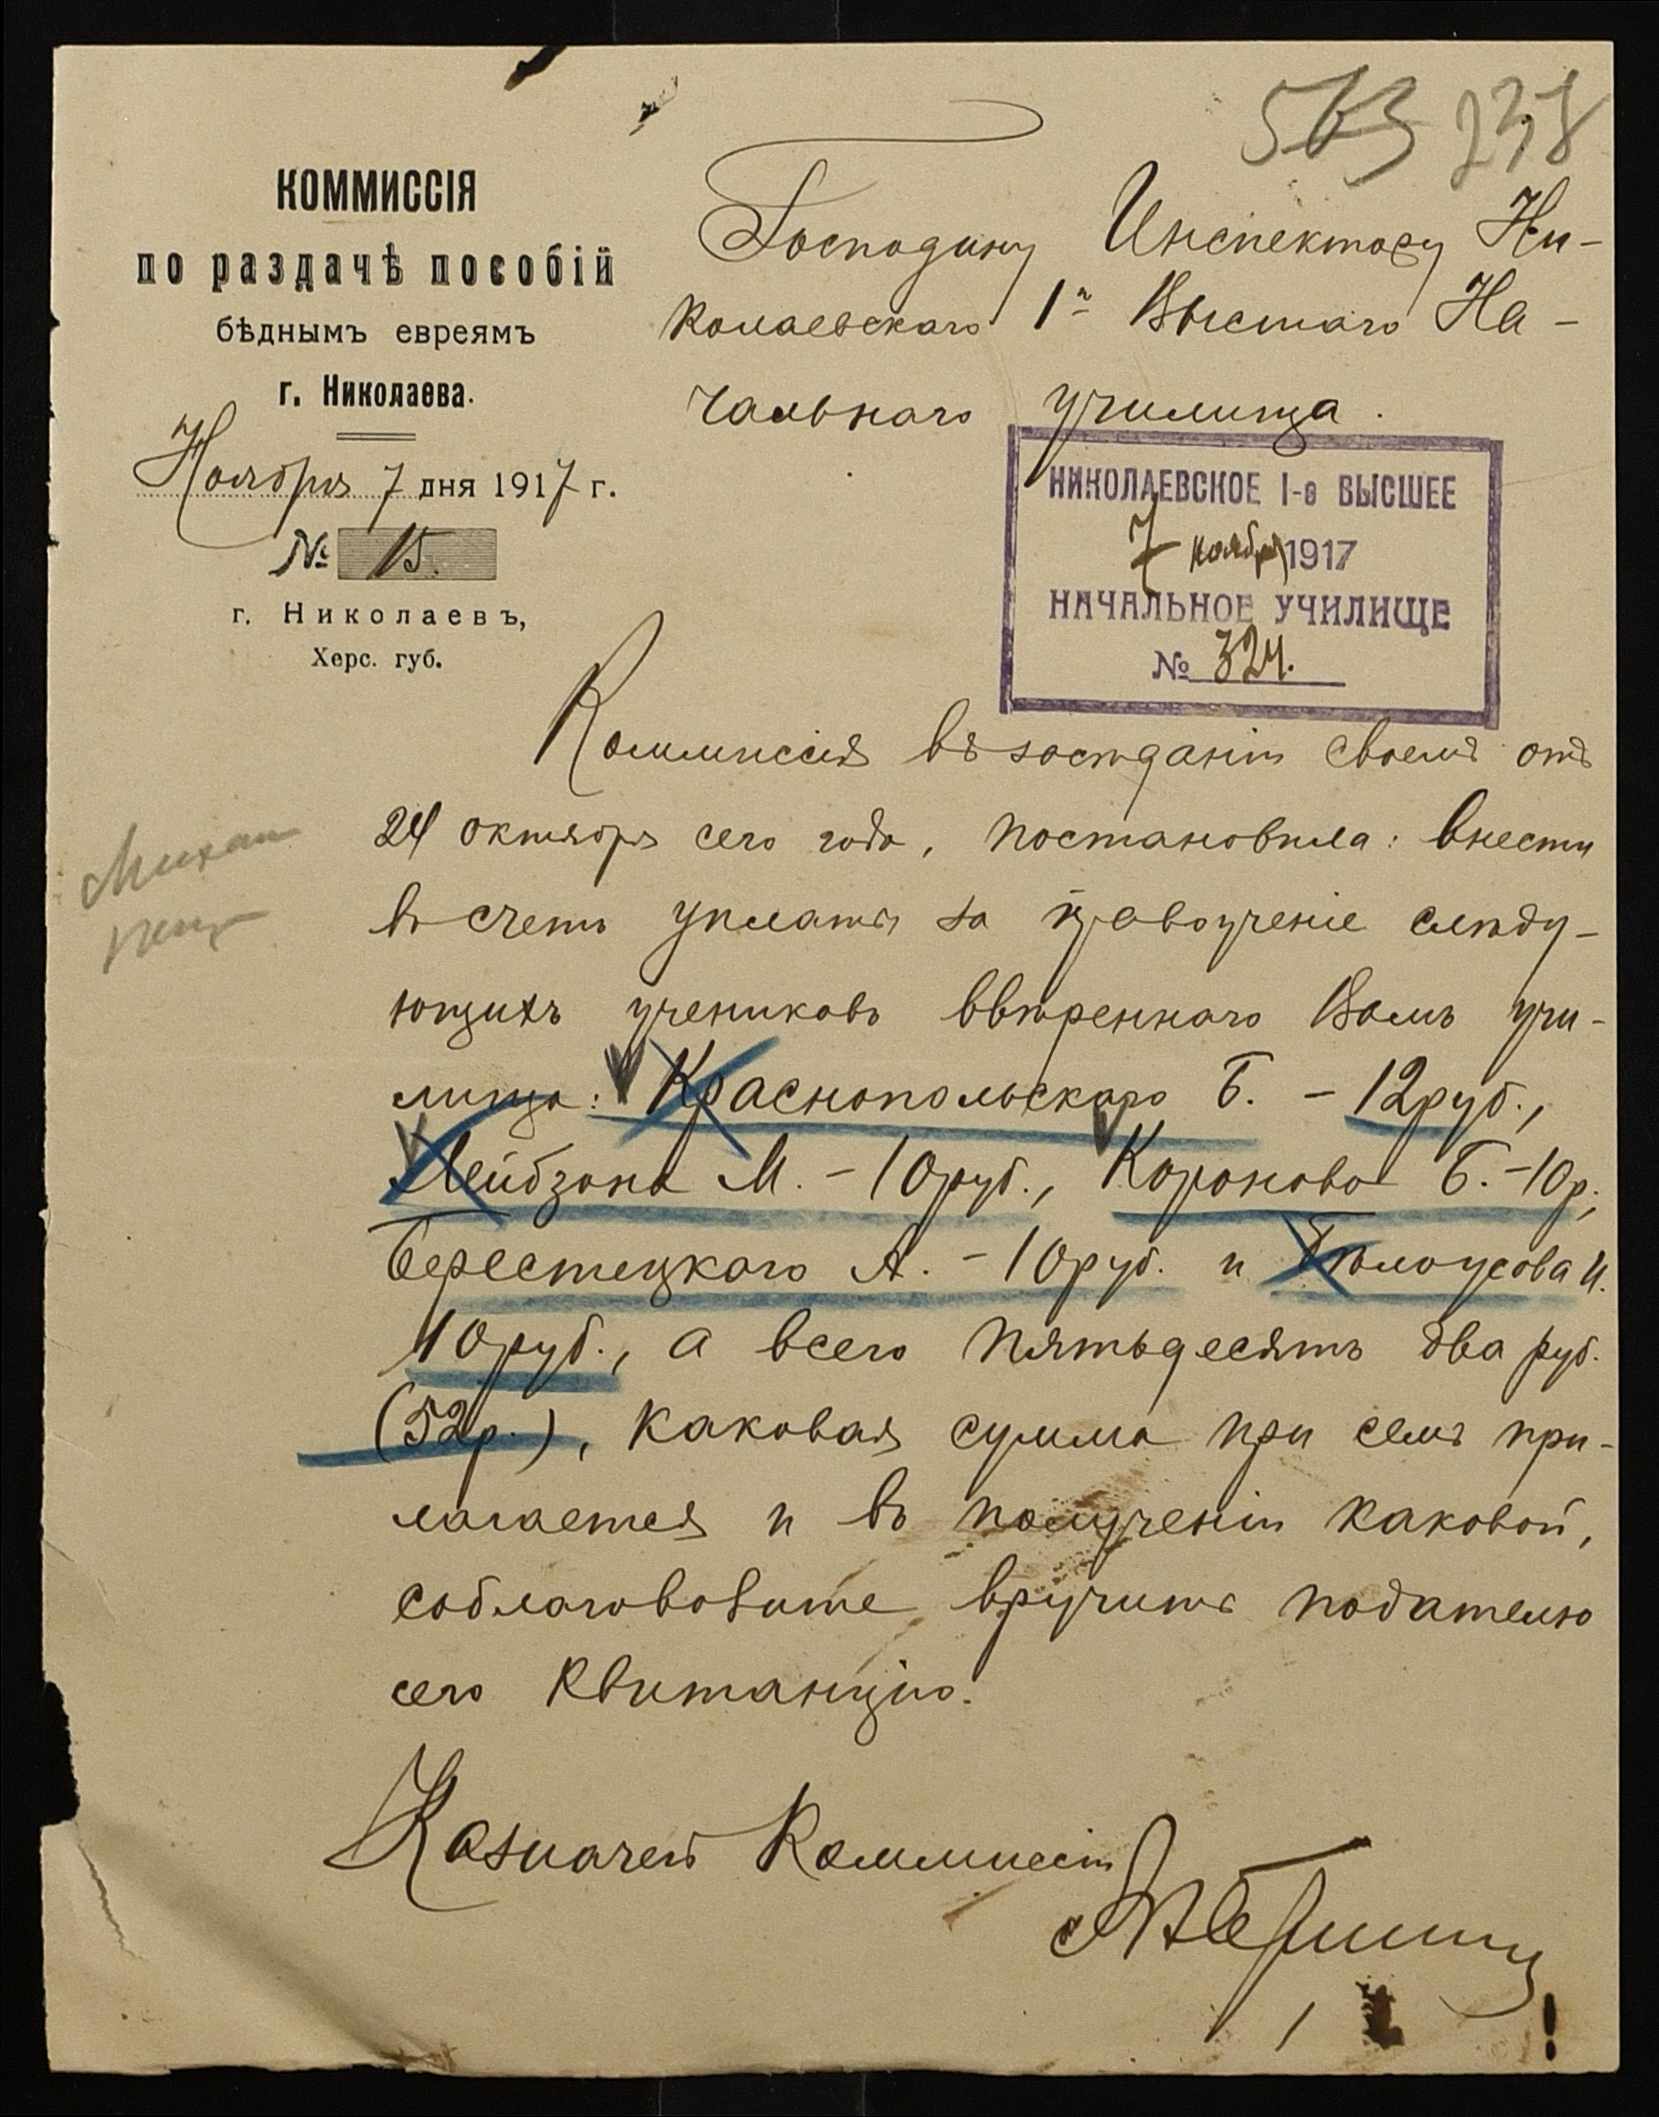 563 238
КОММИССІЯ
по раздачѣ пособій
бѣднымъ евреямъ
г. Николаева.
Ноября 7 дня 1917 г.
№ 15.
г. Николаевъ,
Херс. губ.
Господину Инспектору Ни-
колаевскаго 1го Высшаго На-
чальнаго училища.
НИКОЛАЕВСКОЕ I-е ВЫСШЕЕ
7 ноября 1917
НАЧАЛЬНОЕ УЧИЛИЩЕ
№ 324.
Коммиссія въ засѣданіи своемъ отъ
24 октября сего года, постановила: внести
въ счетъ уплаты за правоученіе слѣду-
ющихъ учениковъ ввѣреннаго Вамъ учи-
лища: Краснопольскаго Б. - 12 руб.,
Лейбзона М. - 10 руб., Коронова Б. - 10 р.,
Берестецкаго А. - 10 руб. и Бѣлоусова И.
10 руб., а всего пятьдесятъ два руб.
(52 р.), каковая сумма при семъ при-
лагается и въ полученіи каковой,
соблаговолите вручить подателю
сего квитанцію.
Казначей Коммиссіи